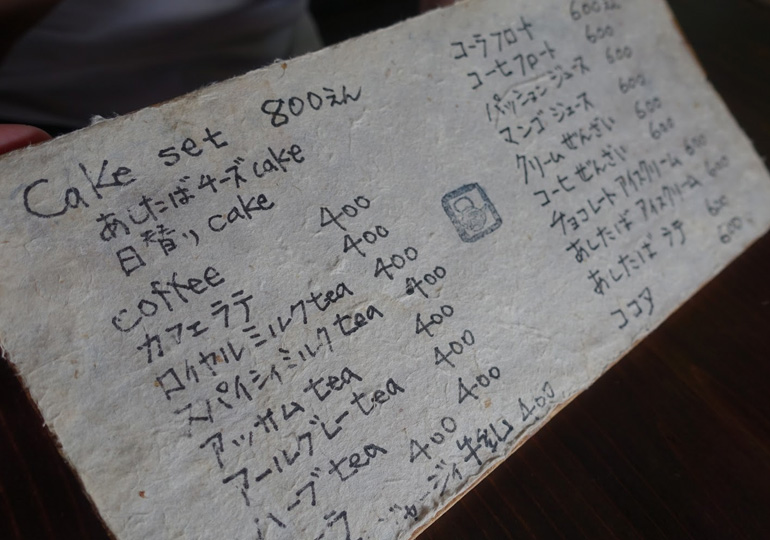 Cake set 800えん
あしたばチーズcake
日替りcake
coffee 400
カフェラテ 400
ロイヤルミルクtea 400
スパイシィミルクtea 400
アッサムtea 400
アールグレーtea 400
ハーブtea 400
400
ジャージィ牛乳 400
コーラフロート 600えん
コーヒフロート 600
パッションジュース 600
マンゴジュース 600
クリームぜんざい 600
コーヒぜんざい 600
チョコレートアイスクリーム 600
あしたばアイスクリーム 600
あしたばラテ 600
ココア 600